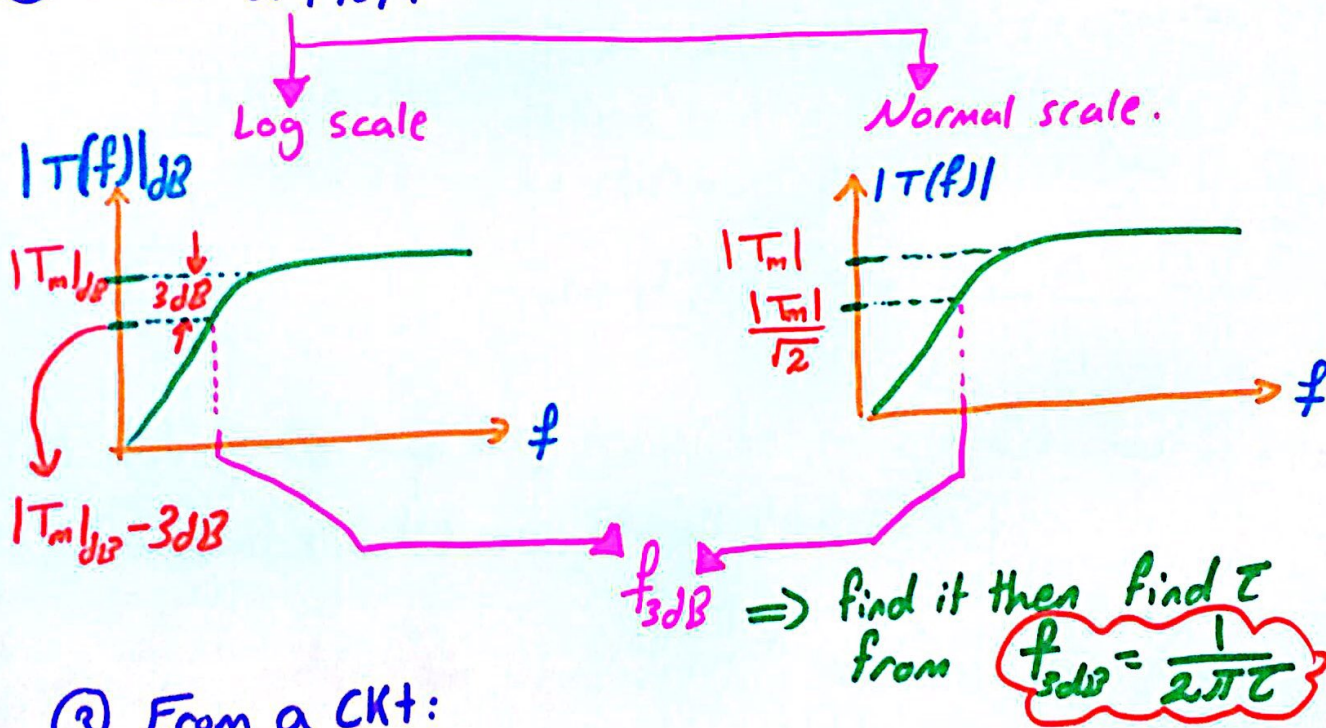 Log scale
Normal scale.
|T(f)|dB
|T(f)|
|Tm|dB
3dB
|Tm|
|Tm|/√2
f
f
|Tm|dB-3dB
f3dB => find it then find τ
from f3dB = 1/2πτ
③ From a CKt: